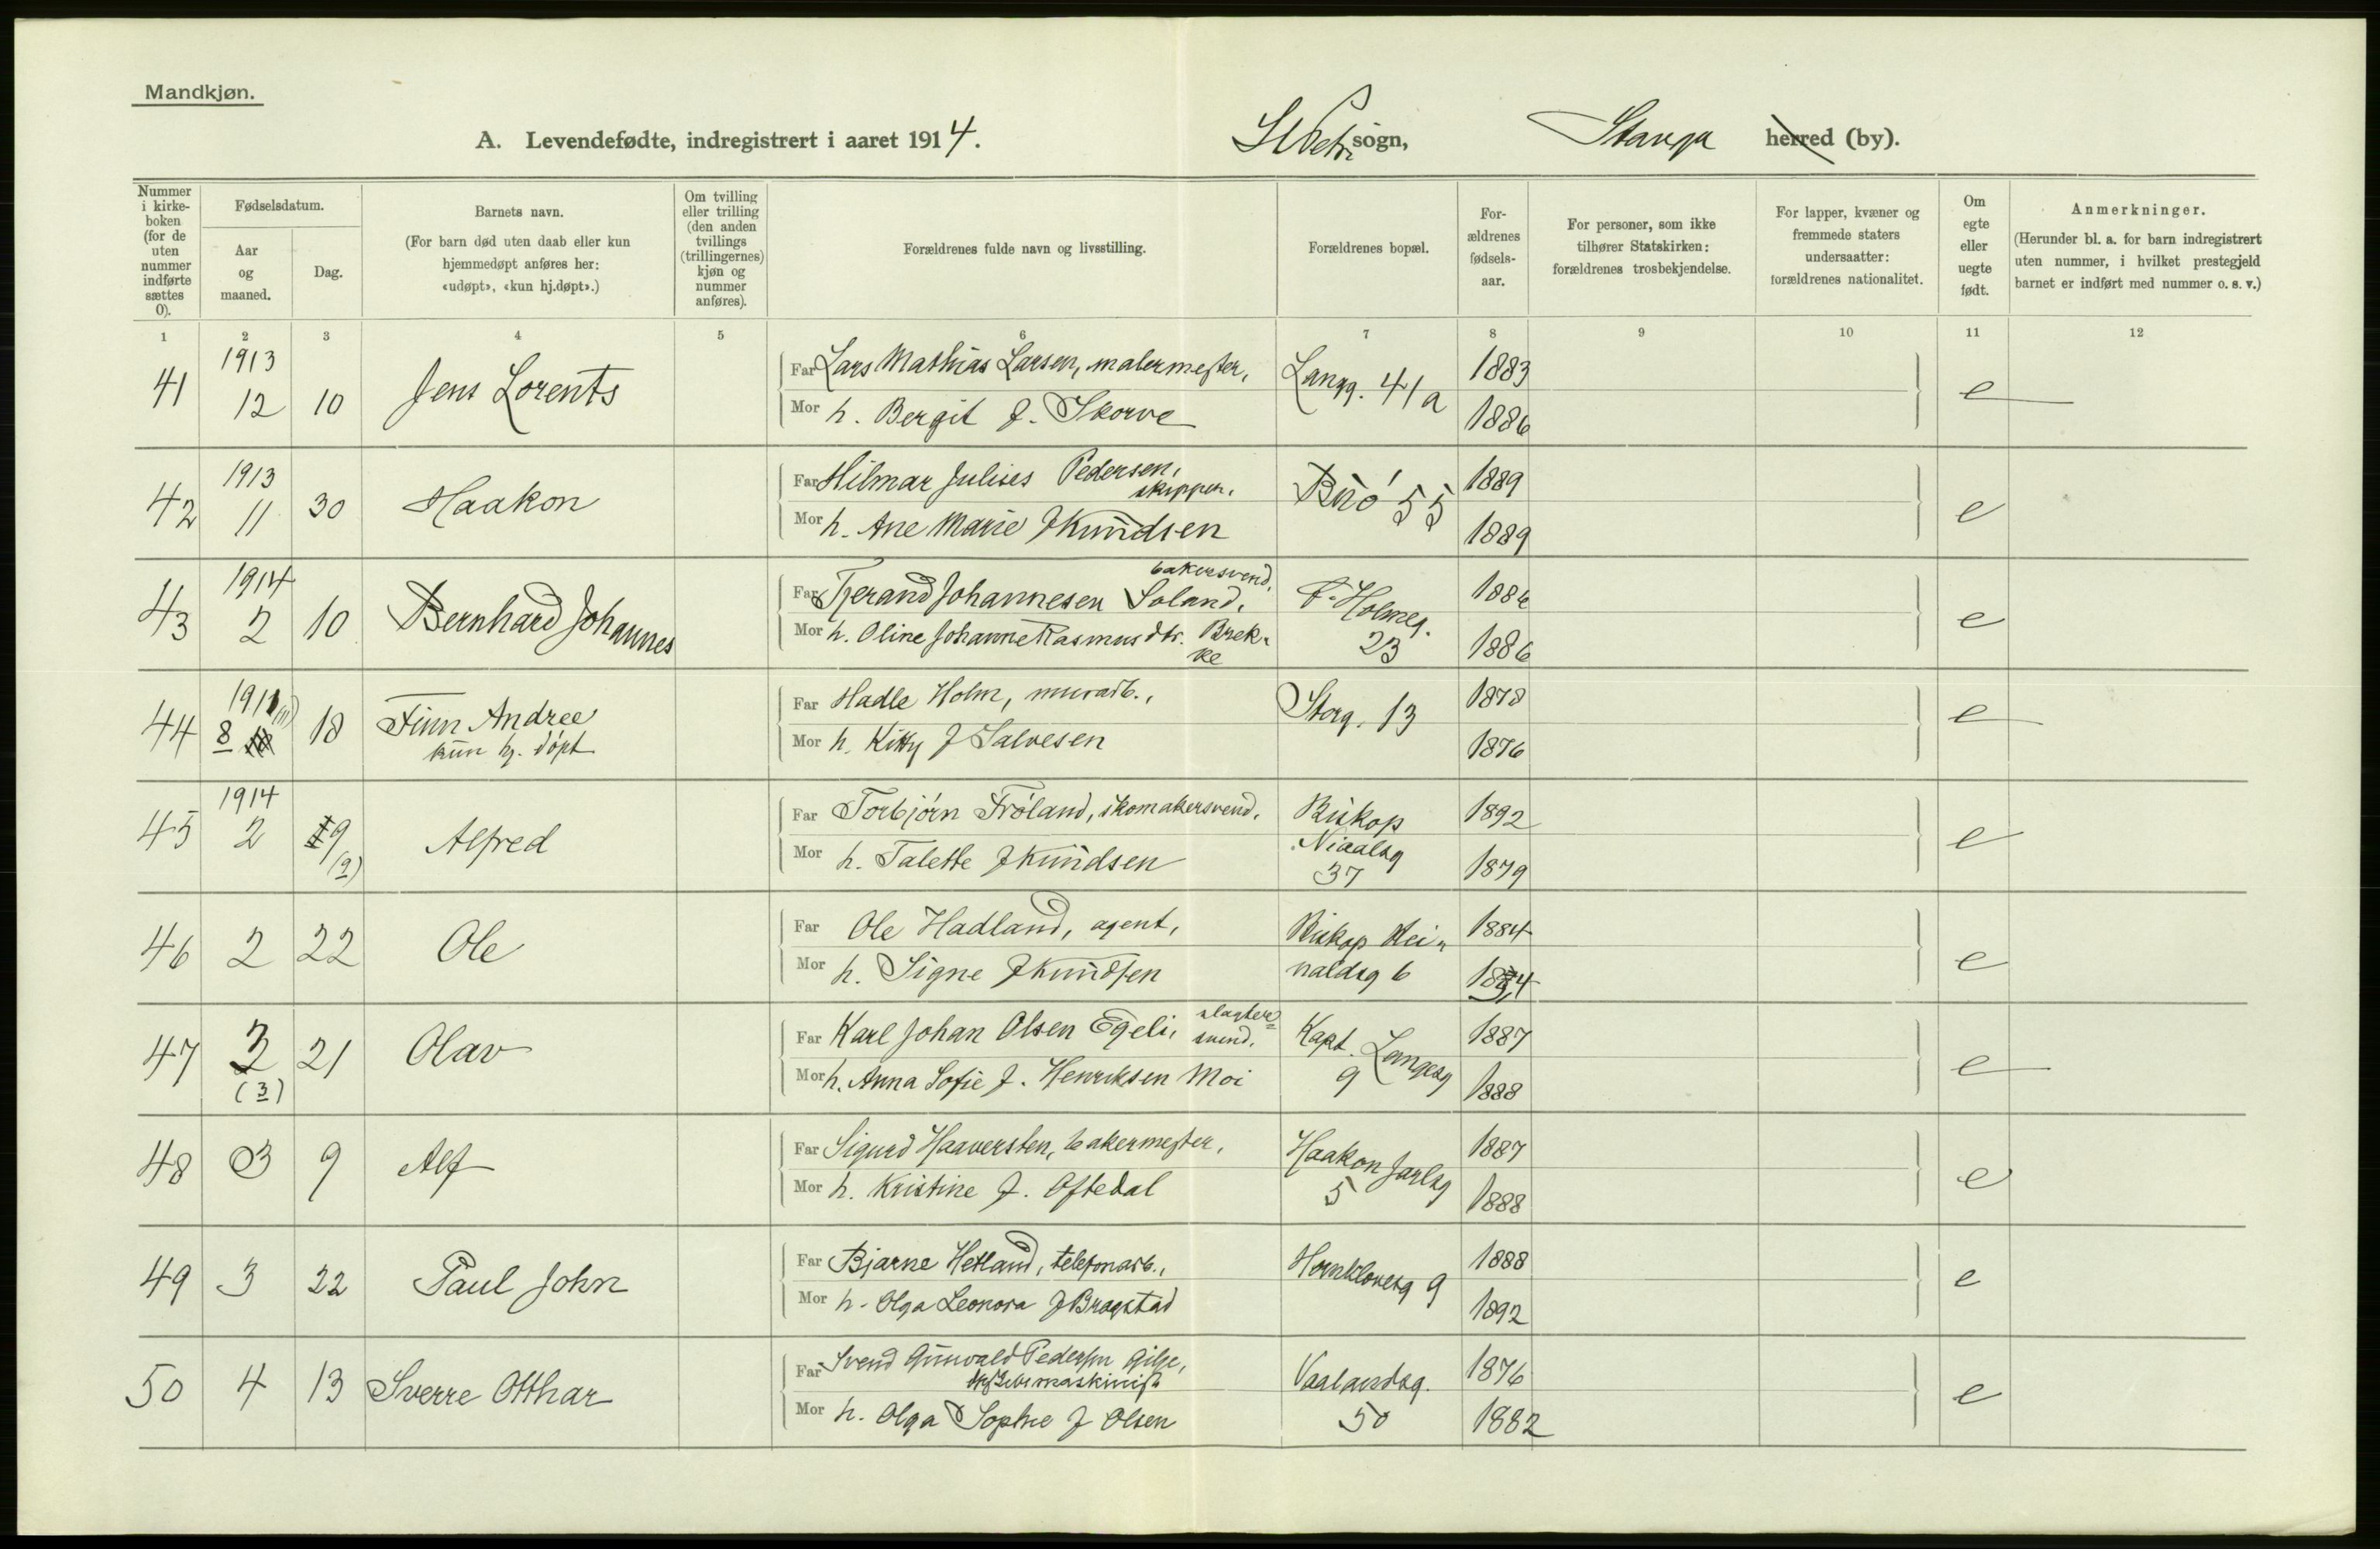 Mandkjøn.
A. Levendefødte, indregistrert i aaret 1914.
St Petri sogn, Stavgr herred (by).
Nummer i kirke-boken (for de uten nummer indførte sættes 0).
Fødselsdatum.
Aar og maaned.
Dag.
Barnets navn.
(For barn død uten daab eller kun hjemmedøpt anføres her: «udøpt», «kun hj.døpt».)
Om tvilling eller trilling (den anden tvillings (trillingernes) kjøn og nummer anføres).
Forældrenes fulde navn og livsstilling.
Forældrenes bopæl.
For-ældrenes fødsels-aar.
For personer, som ikke tilhører Statskirken: forældrenes trosbekjendelse.
For lapper, kvæner og fremmede staters undersaatter: forældrenes nationalitet.
Om egte eller uegte født.
Anmerkninger.
(Herunder bl. a. for barn indregistrert uten nummer, i hvilket prestegjeld barnet er indført med nummer o. s. v.)
1 2 3 4 5 6 7 8 9 10 11 12
41 1913 12 10 Jens Lorents Far Lars Mathias Larsen, malermester, Langg. 41a 1883 e
Mor h. Bergit f. Skorve 1886
42 1913 11 30 Haakon Far Hilmar Julius Pedersen, skipper. Buø 55 1889 e
Mor h. Ane Marie f Knudsen 1889
43 1914 2 10 Bernhard Johannes Far Tjerand Johannesen Soland, bakersvend. F. Holmeg. 23 1886 e
Mor h. Oline Johanne Rasmusdtr. Brekke 1886
44 191 (11) 8 18 Finn Andree kun hj. døpt Far Hadle Holm, murarb., Storg. 13 1878 e
Mor h. Kitty f Salvesen 1876
45 1914 2 9 (9) Alfred Far Torbjørn Frøland, skomakersvend. Biskop Niaalsg 37 1892 e
Mor h. Talette f Knudsen 1879
46 2 22 Ole Far Ole Hadland, agent, Biskop Reinaldsg 6 1884 e
Mor h. Signe f Knudsen 1884
47 3 (3) 21 Olav Far Karl Johan Olsen Egeli, slagtersvend. Kapt. Langesg 9 1887 e
Mor h. Anna Sofie f. Henriksen Moi 1888
48 3 9 Alf Far Sigurd Haaversten, bakermester, Haakon Jarlsg 5 1887 e
Mor h. Kristine f. Oftedal 1888
49 3 22 Paul John Far Bjarne Hetland, telefonarb., Hornklovesg 9 1888 e
Mor h. Olga Leonora f Bragstad 1892
50 4 13 Sverre Otthar Far Svend Gunvald Pedersen Gilje, maskinist Vaalandsg. 50 1876 e
Mor h. Olga Sophie f Olsen 1882